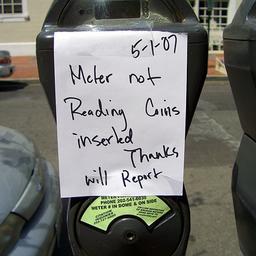 5-1-07
Meter not
Reading Coins
inserted
Thanks
will Report
PHONE 202-541-6030
METER # IN DOME & ON SIDE